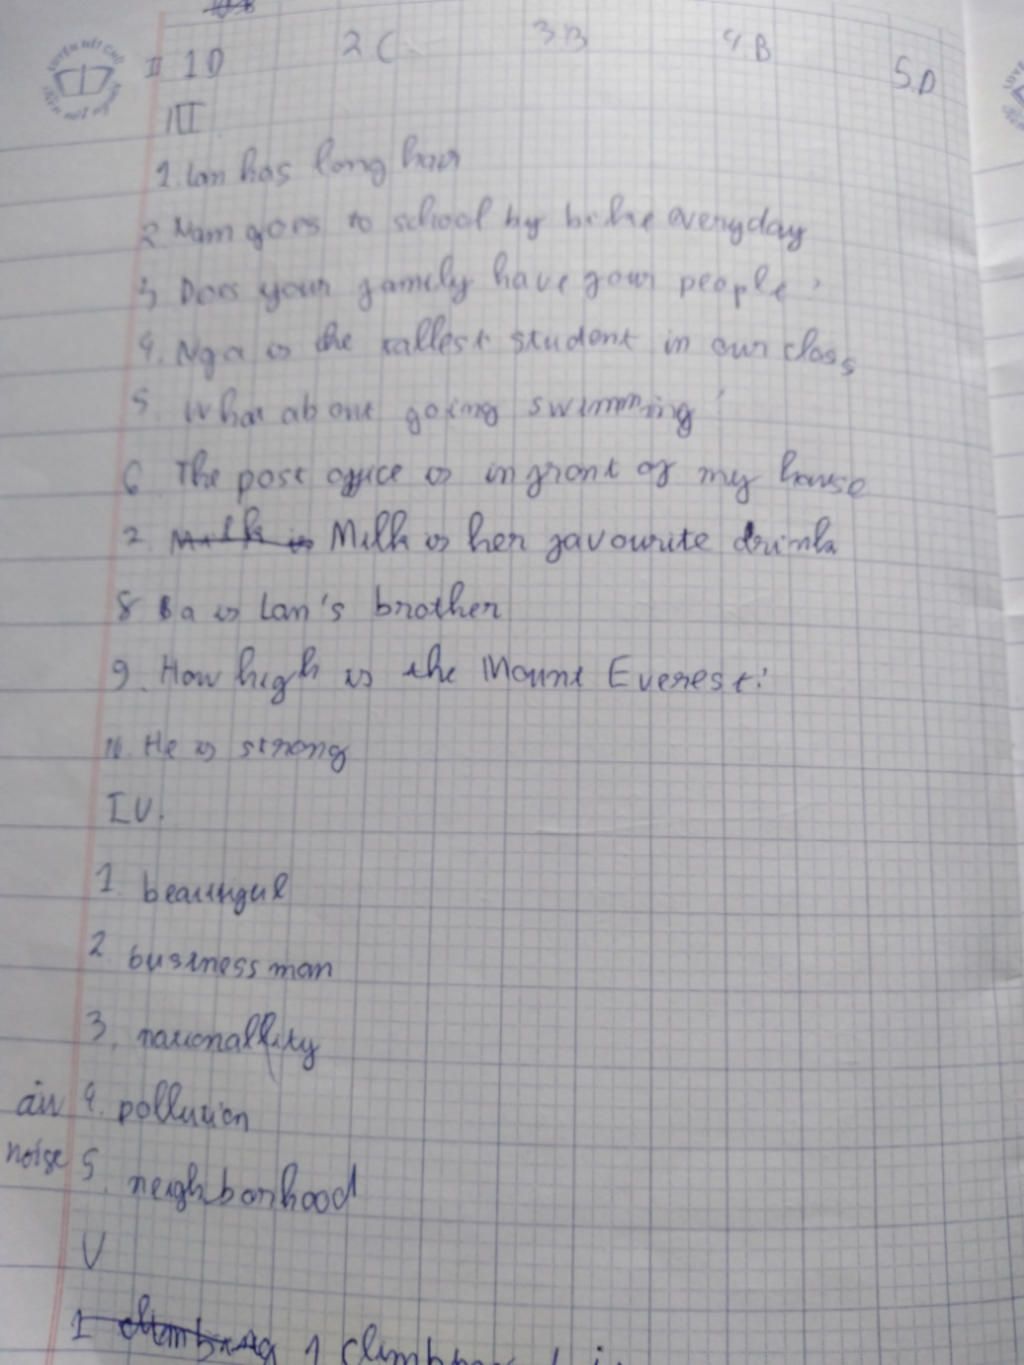 II 1D 2C 3B 4.B 5.D
III
1. Lan has long hair
2 Nam goes to school by bike everyday
3 Does your family have four people?
4. Nga is the tallest student in our class
5. What about going swimming?
6 The post office is in front of my house
7. Milk is Milk is her favourite drink
8 Ba is Lan's brother
9. How high is the Mount Everest?
10. He is strong
IV.
1. beautiful
2 businessman
3. nationallity
air 4. pollution
noise 5. neighborhood
V
1 climbing 1